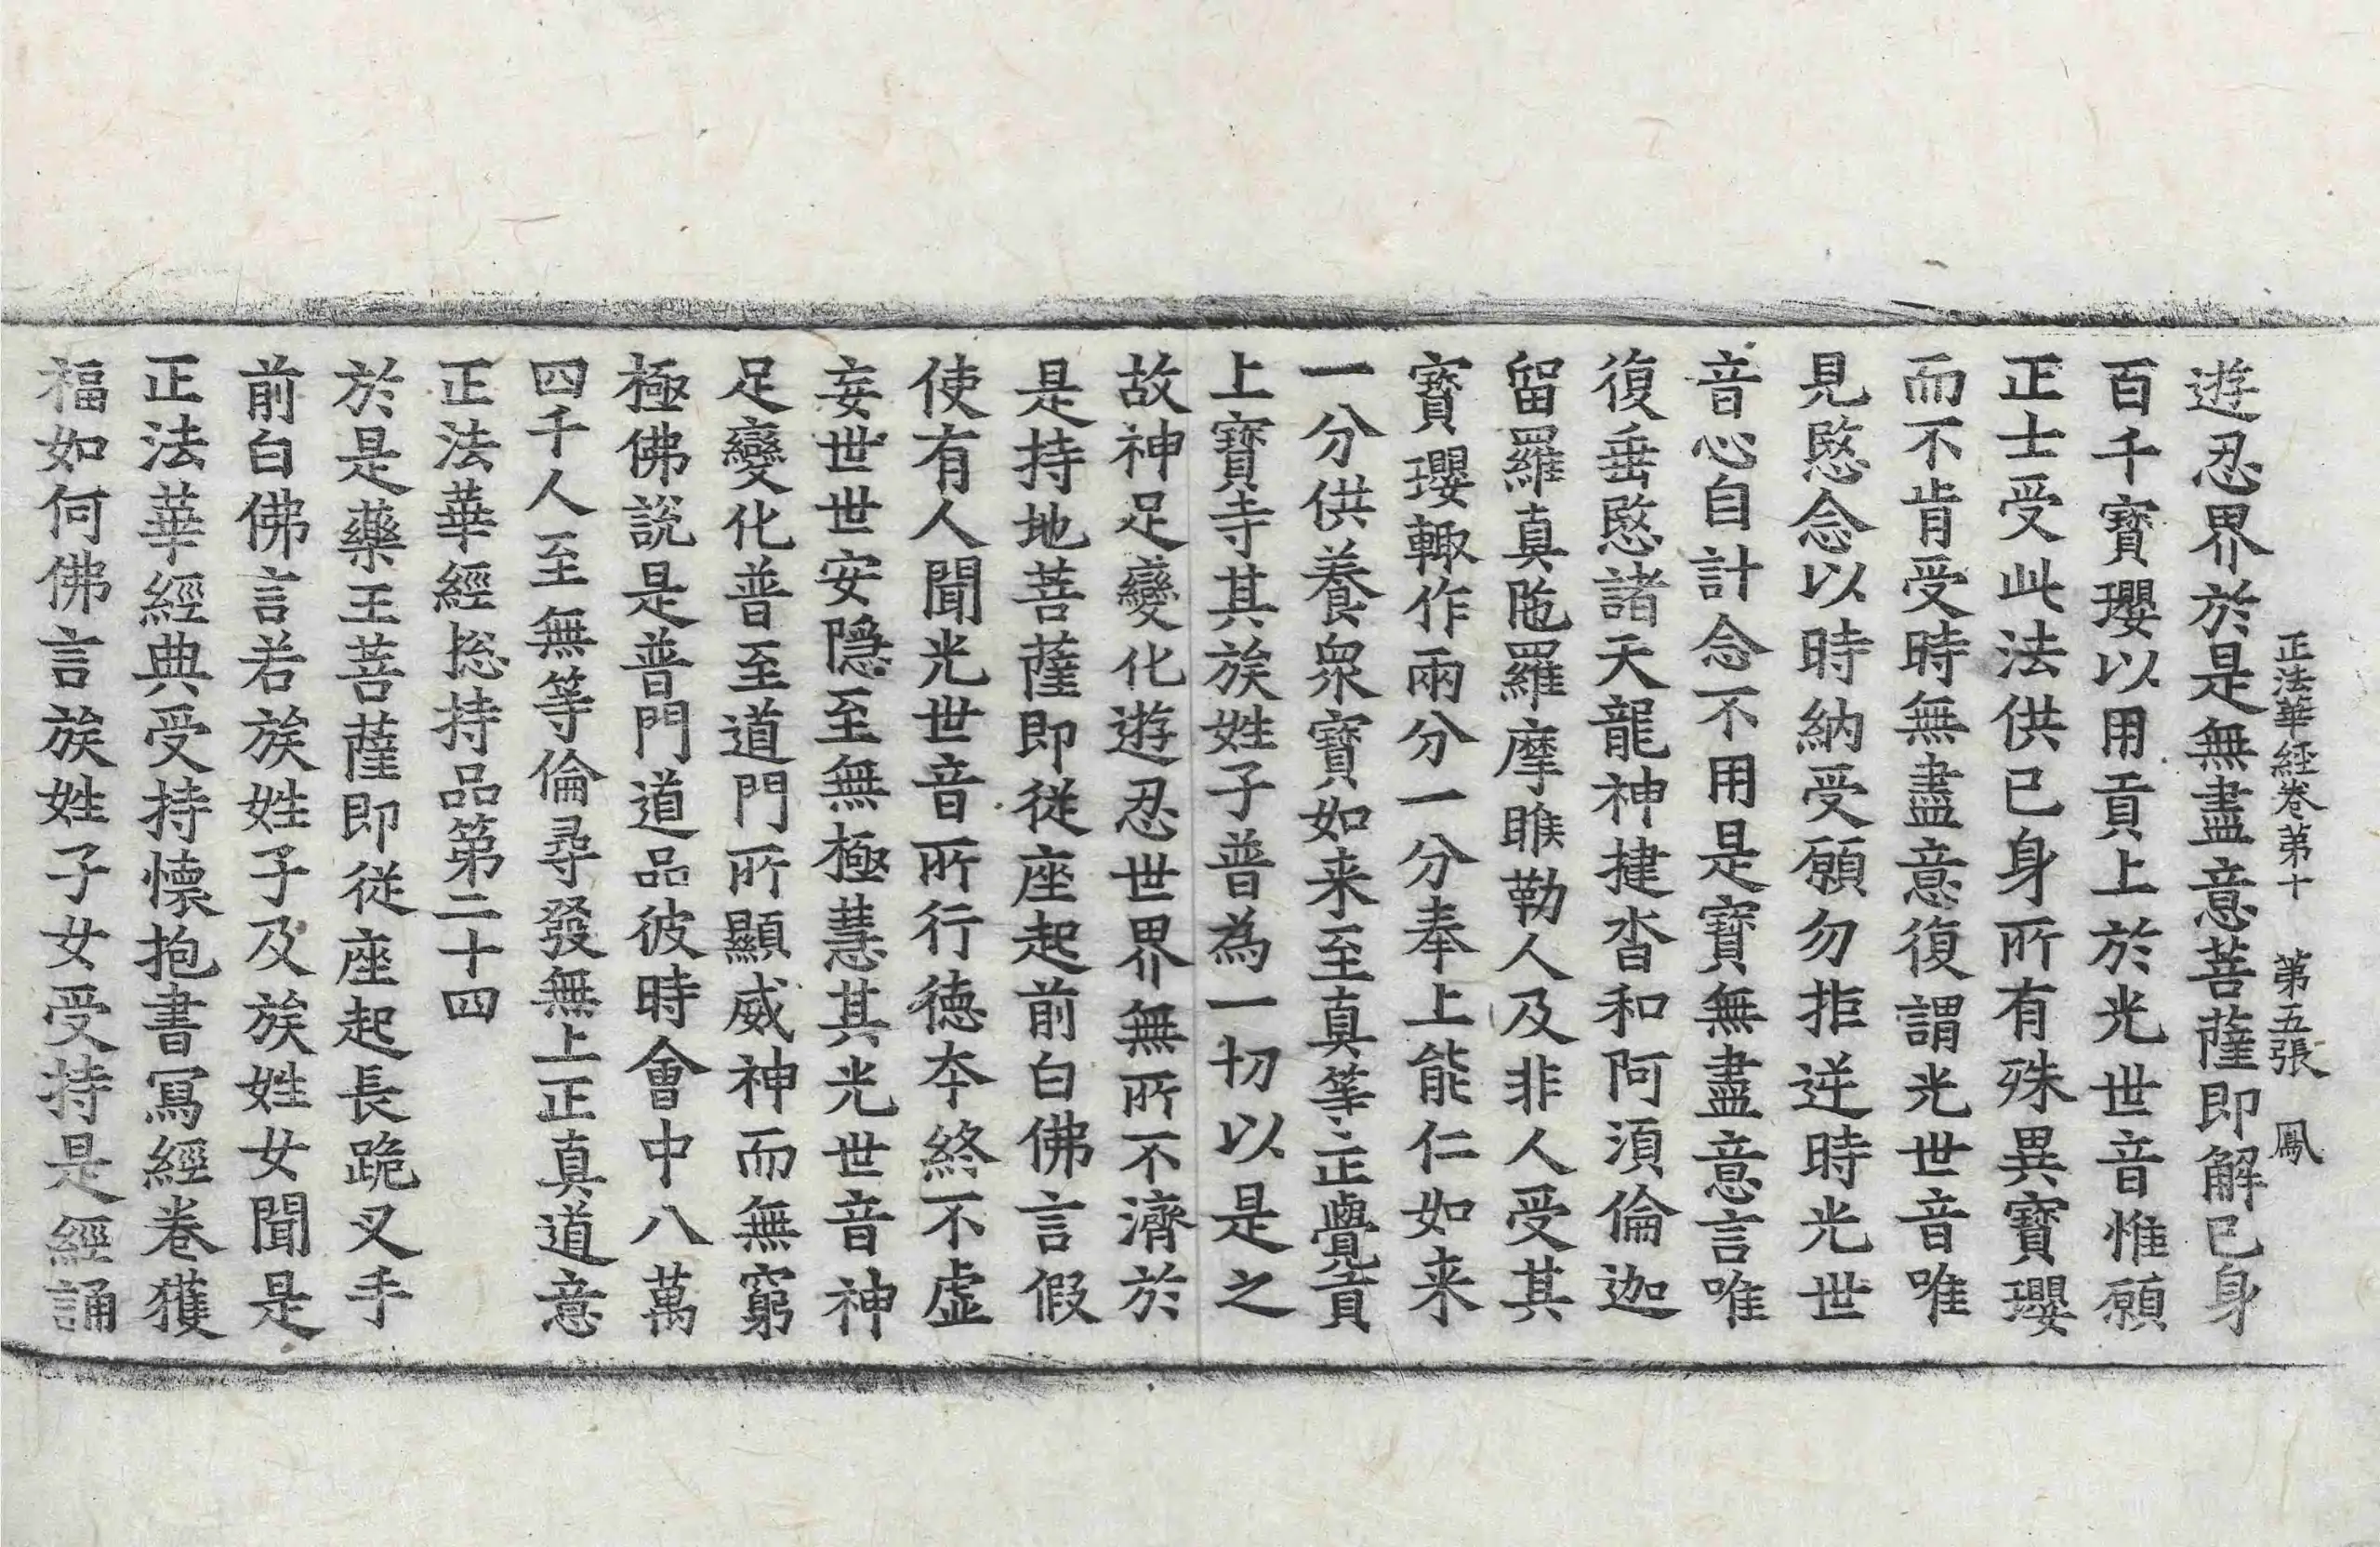 正法華經卷第十 第五張 鳳
遊忍界於是無盡意菩薩即解已身
百千寶瓔以用貢上於光世音惟願
正士受此法供已身所有殊異寶瓔
而不肯受時無盡意復謂光世音唯
見愍念以時納受願勿拒逆時光世
音心自計念不用是寶無盡意言唯
復垂愍諸天龍神揵沓和阿須倫迦
留羅真陁羅摩睺勒人及非人受其
寶瓔輙作兩分一分奉上能仁如来
一分供養衆寶如来至真等正覺貢
上寶寺其族姓子普為一切以是之
故神足變化遊忍世界無所不濟於
是持地菩薩即從座起前白佛言假
使有人聞光世音所行德夲終不虛
妄世世安隱至無極慧其光世音神
足變化普至道門所顯威神而無窮
極佛說是普門道品彼時會中八萬
四千人至無等倫尋發無上正真道意
正法華經揔持品第二十四
於是藥王菩薩即從座起長跪叉手
前白佛言若族姓子及族姓女聞是
正法華經典受持懷抱書寫經卷獲
福如何佛言族姓子女受持是經誦